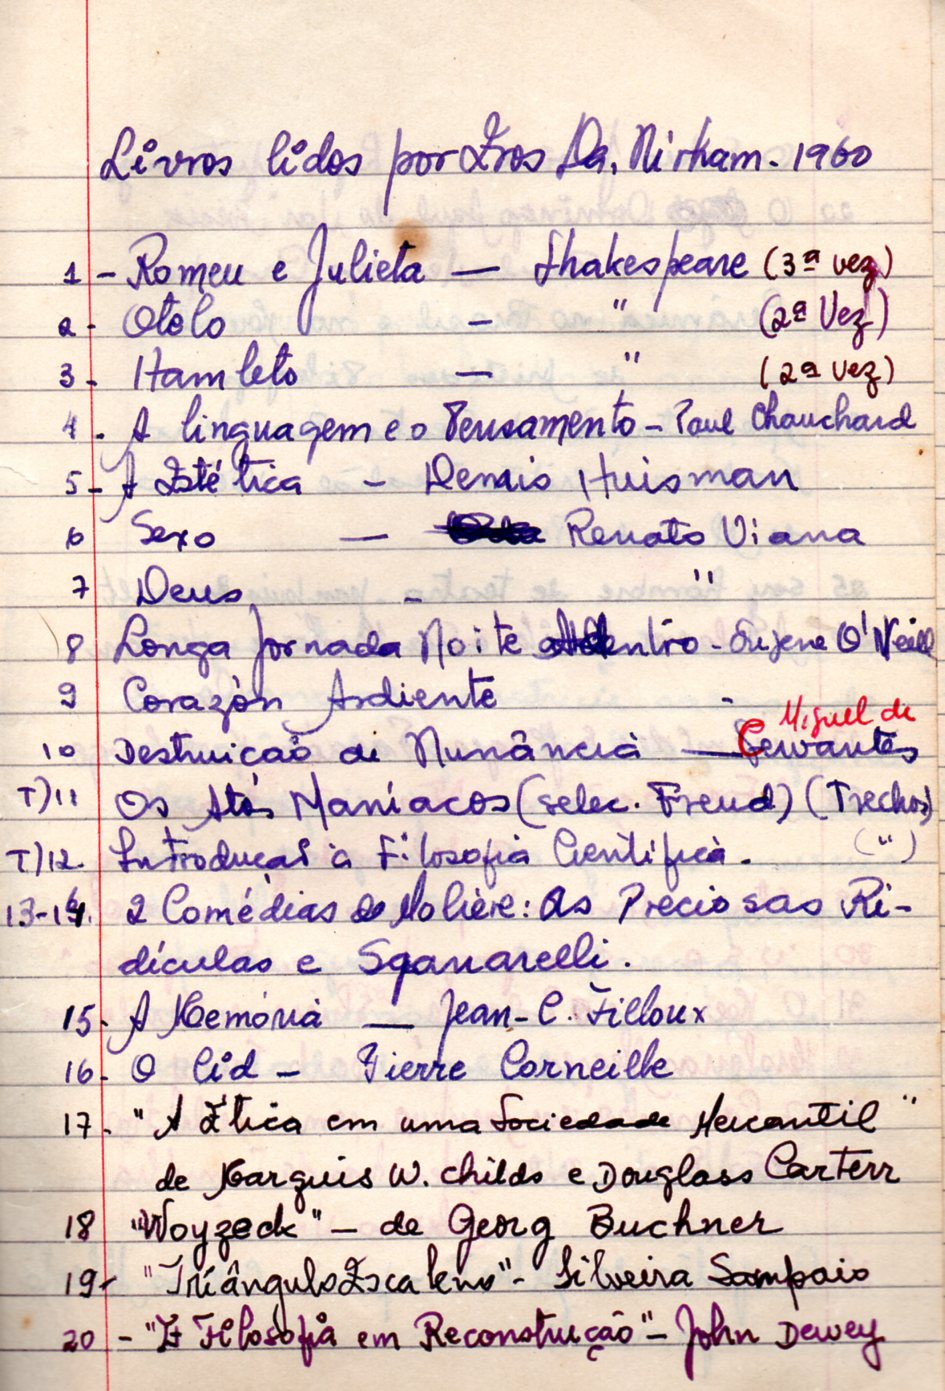 Livros lidos por Eros Da. Nirham. 1960
1 - Romeu e Julieta — Shakespeare (3ª vez)
2 - Otelo — " (2ª Vez)
3 - Hamleto — " (2ª vez)
4 - A linguagem e o Pensamento - Paul Chauchard
5 - A Estética - Denis Huisman
6 Sexo — Renato Viana
7 Deus - "
8 Longa Jornada Noite Adentro - Eujene O'Neill
9 Corazón Ardiente -
10 Destruição de Numância — Miguel de Cervantes
T) 11 Os Atos Maníacos (selec. Freud) (Trechos)
T) 12. Introduçaõ à Filosofia Científica. (")
13-14. 2 Comédias de Molière: As Preciosas Ri-
dículas e Sganarelli.
15. A Memória — Jean-C. Filloux
16. O Cid - Pierre Corneille
17. "A Ética em uma Sociedade Mercantil"
de Marquis W. Childs e Douglass Carterr
18 "Woyzeck" - de Georg Buchner
19- "Triângulo Escaleno" - Silveira Sampaio
20 - "A Filosofia em Reconstrução" - John Dewey